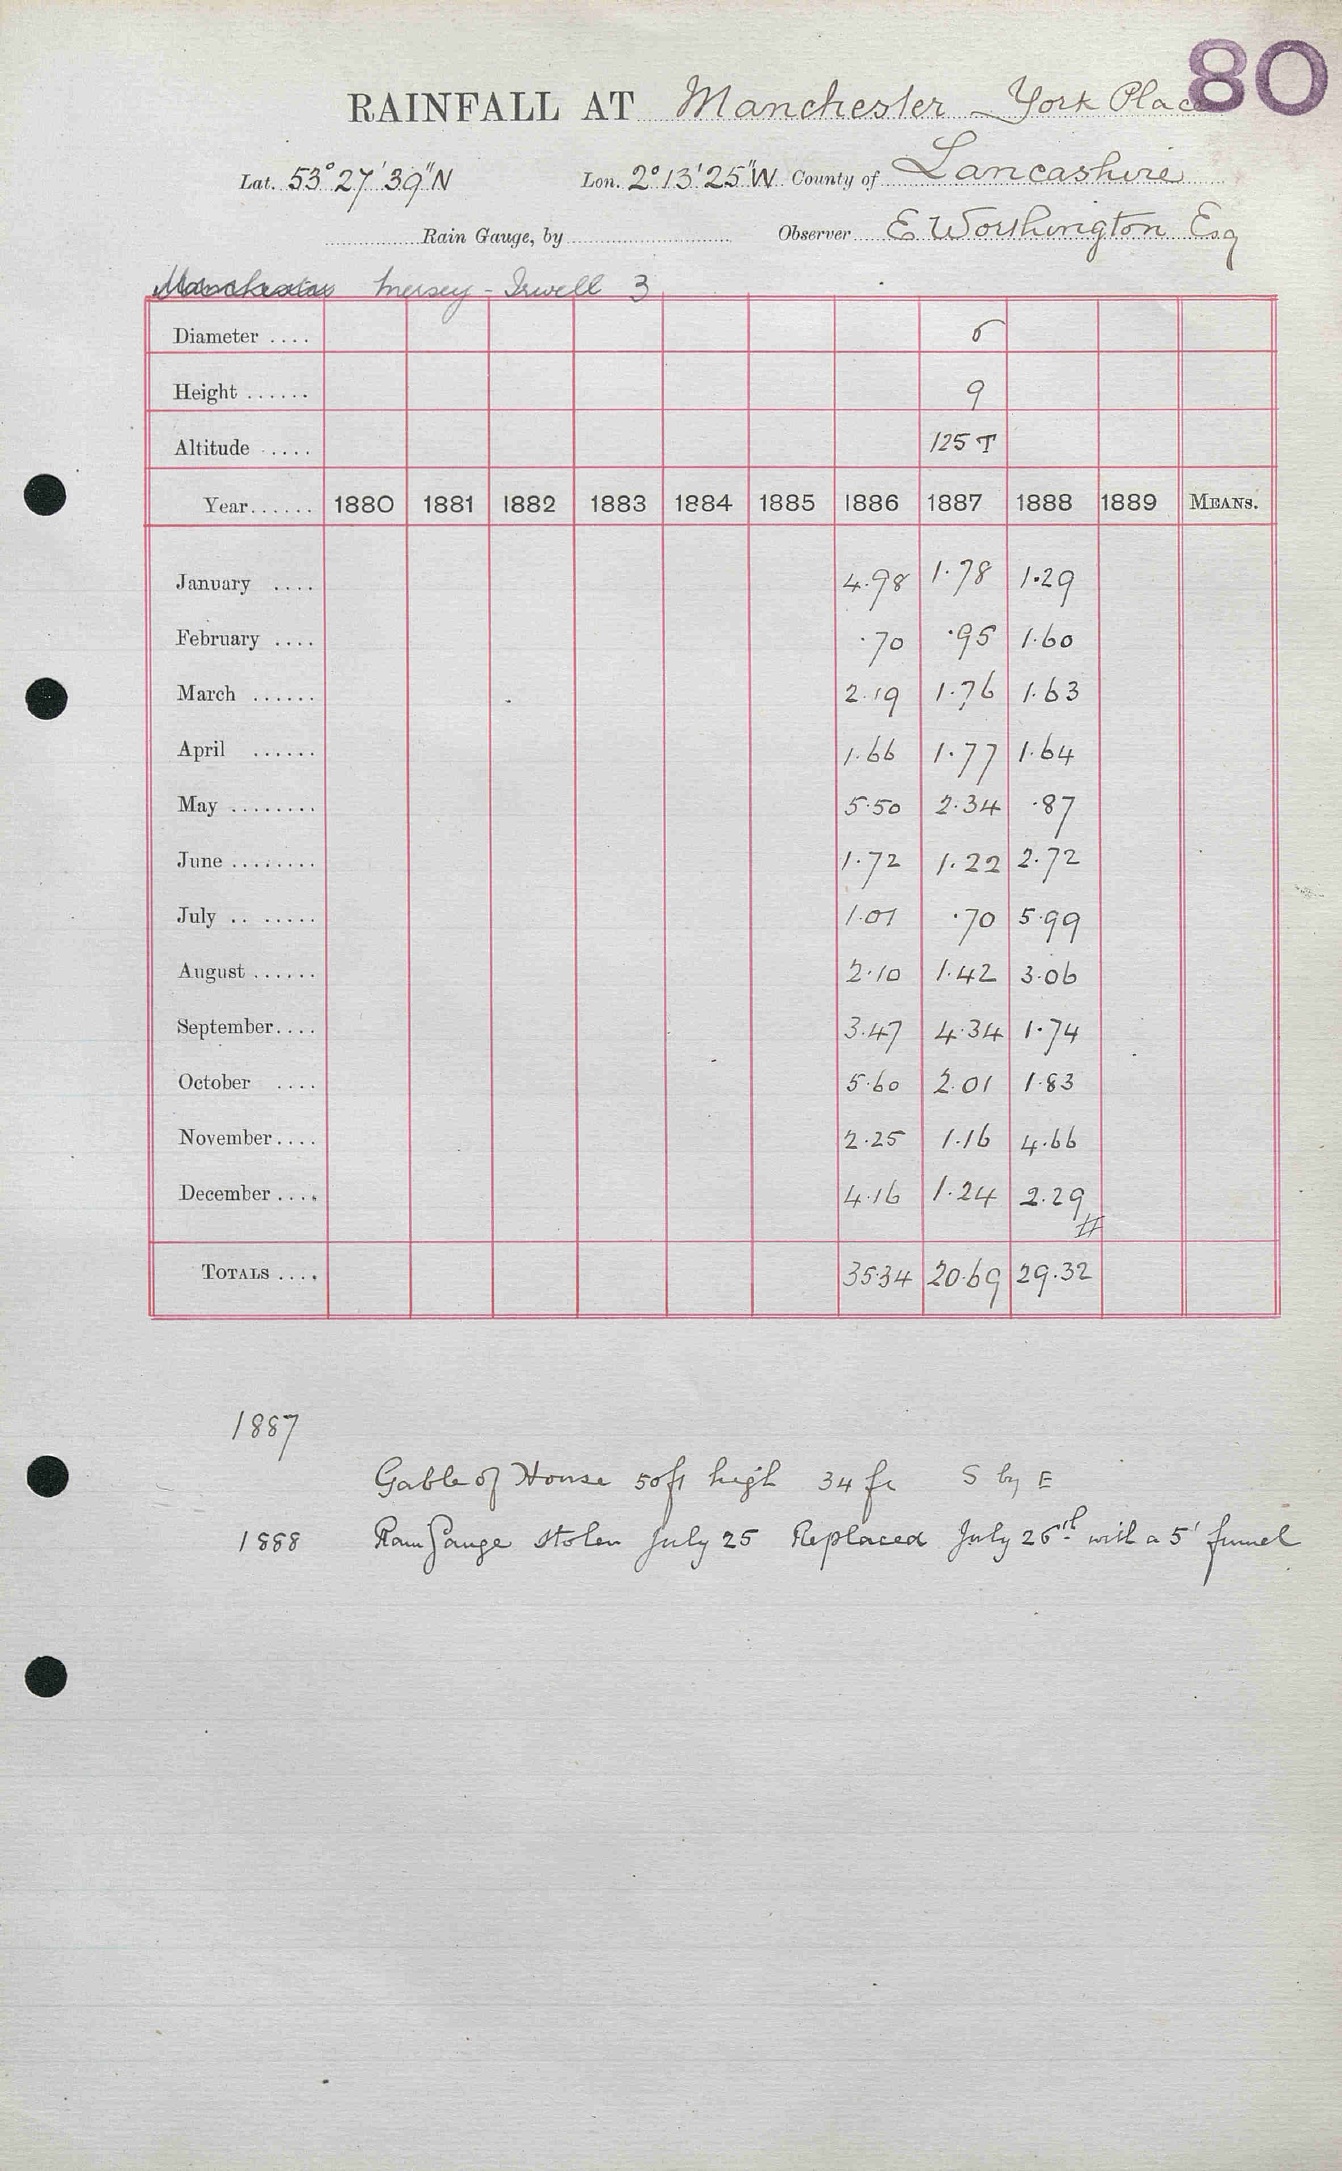 80
RAINFALL AT Manchester York Place
Lat. 53° 27' 39" N Lon. 2° 13' 25" W County of Lancashire
Rain Gauge, by Observer E Worthington Esq
Manchester Mersey - Irwell 3
Diameter .... 5
Height ...... 9
Altitude ..... 125 T
Year...... 1880 1881 1882 1883 1884 1885 1886 1887 1888 1889 MEANS.
January .... 4.98 1.78 1.29
February .... .70 .95 1.60
March ...... 2.19 1.76 1.63
April ...... 1.66 1.77 1.64
May ........ 5.50 2.34 .87
June ........ 1.72 1.22 2.72
July .. ...... 1.01 .70 5.99
August ...... 2.10 1.42 3.06
September.... 3.47 4.34 1.74
October .... 5.60 2.01 1.83
November.... 2.25 1.16 4.66
December .... 4.16 1.24 2.29
#
TOTALS .... 35.34 20.69 29.32
1887
Gable of House 50ft high 34 ft S by E
1888 Rain Gauge stolen July 25 Replaced July 26th with a 5' funnel